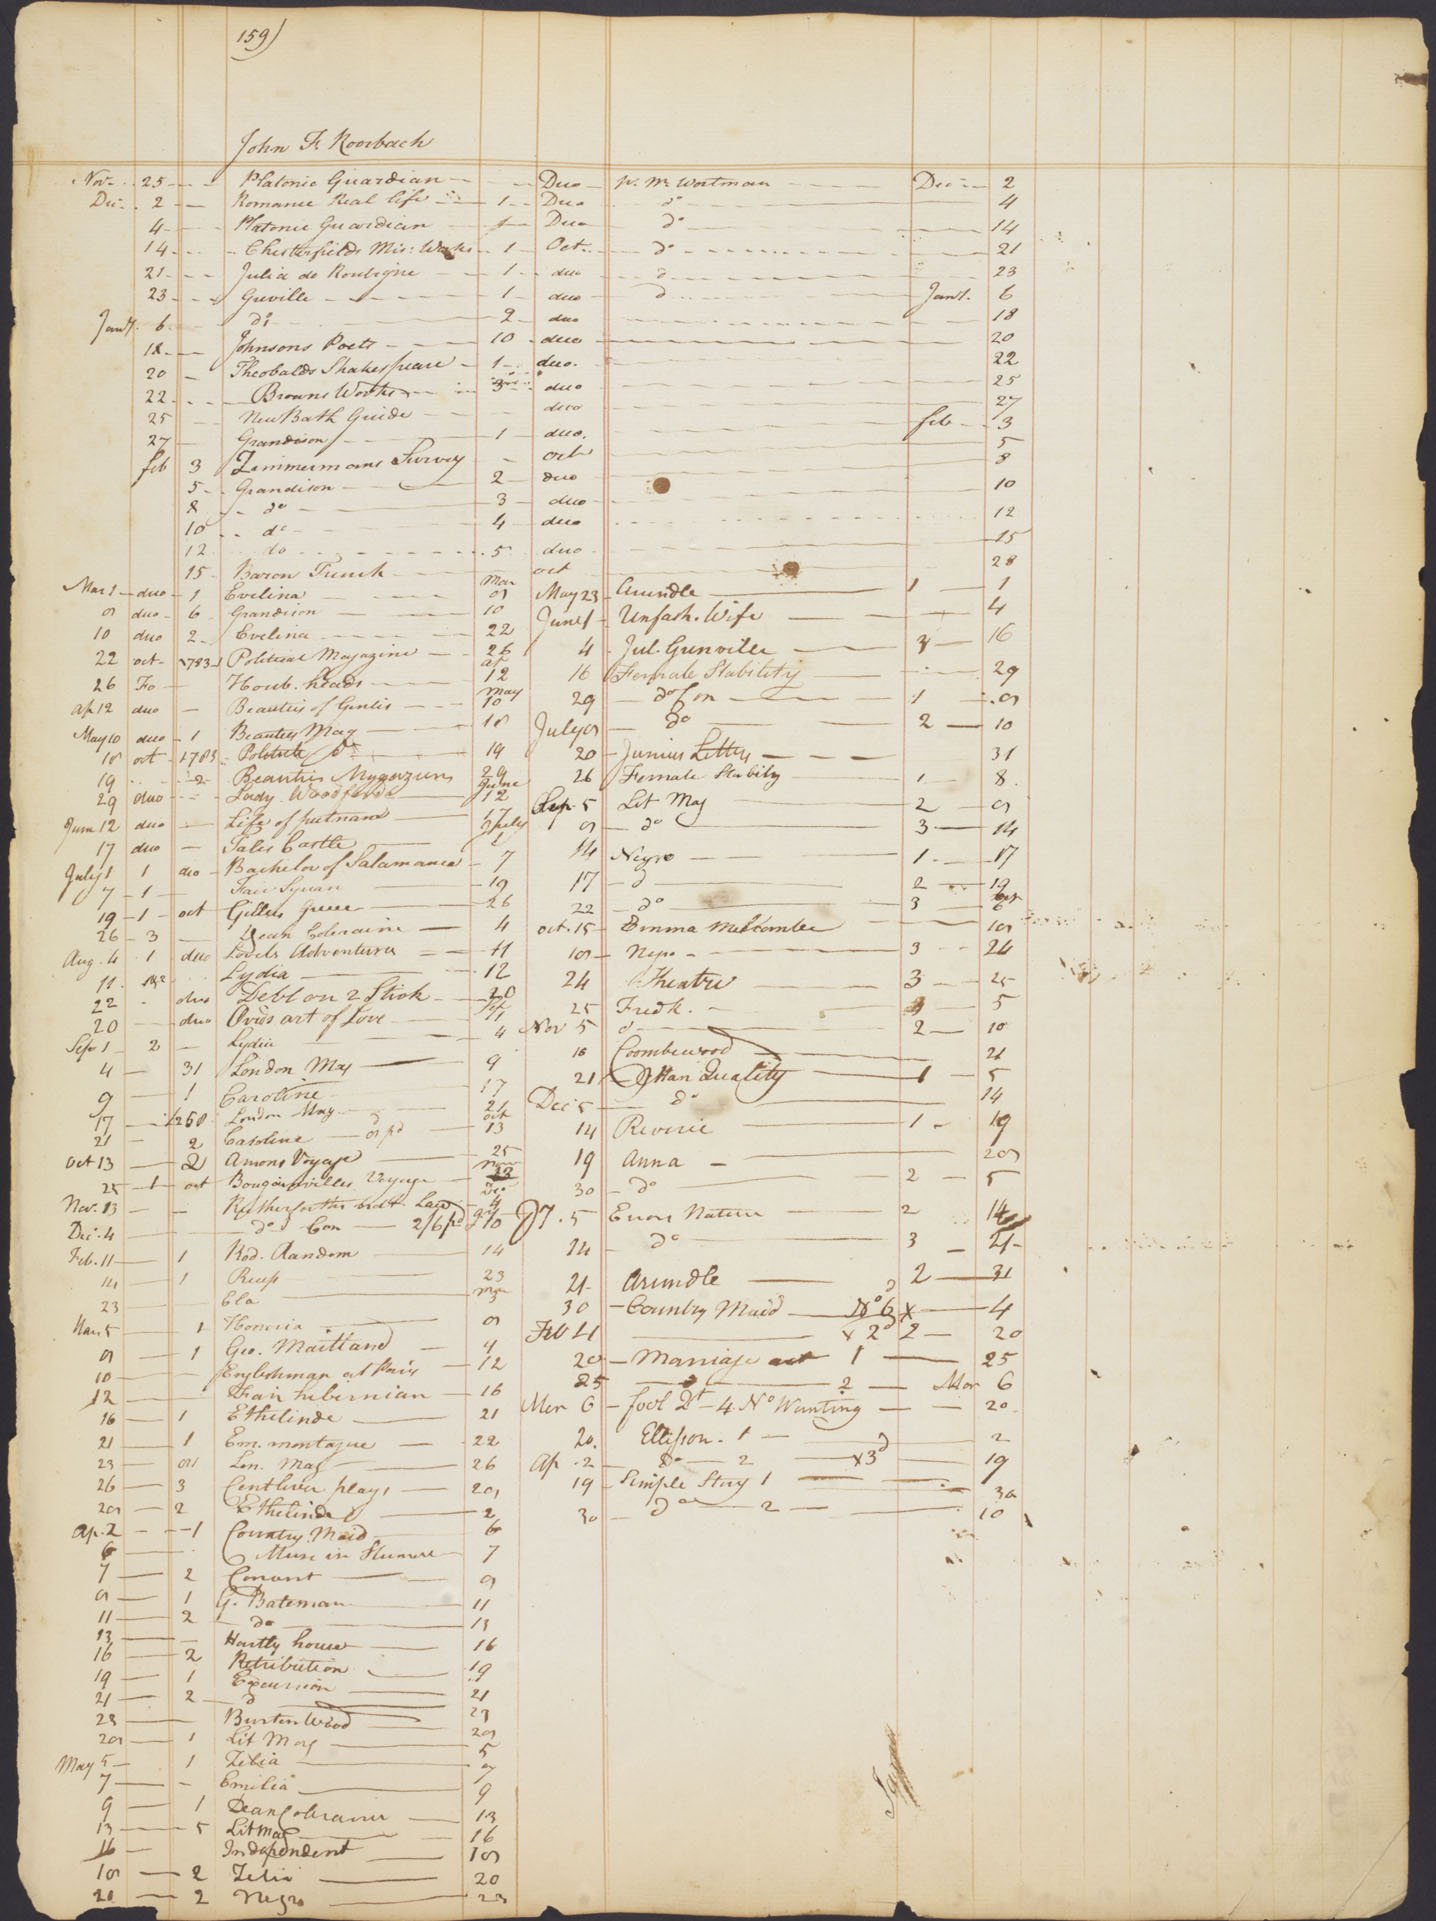 159)
John F. Roorbach
Nov. 25 Platonic Guardian Duo W. Wortman Dec. 2
Dec. 2 Romance Real life 1 Duo do 4
4 Platonic Guardian 1 Duo do 14
14 Chesterfields Mis: Works 1 Oct. do 21
21 Julia de Roubigne 1 duo d 23
23 Greville 1 duo d Jany. 6
Jany. 6 do 2 duo 18
18 Johnsons Poets 10 duo 20
20 Theobalds Shakespeare 1 duo. 22
22 Browns Works 3 duo 25
25 New Bath Guide duo 27
27 Grandison 1 duo. feb 3
feb 3 Zimmermans Survey oct 5
5 Grandison 2 duo 8
8 do 3 duo 10
10 do 4 duo 12
12 do 5 duo 15
15 Baron Trenk oct 28
Mar 1 duo 1 Evelina Mar 9
9 duo 6 Grandison 10
10 duo 2 Evelina 22
22 oct 1783 Political Magazine 26
26 Fo Houb. heads ap 12
ap 12 duo Beauties of Genlis May 10
May 10 duo 1 Beauties Mag 18
18 oct 1783 Politicle do 19
19 2 Beauties Magazine 29
29 duo Lady Woodford June 12
June 12 duo Life of putnam 17
17 duo Tales Castle July 1
July 1 1 duo Bachelor of Salamanca 7
7 1 Fair Syrian 19
19 1 oct Gillies Greece 26
26 3 Dean Coleraine 4
Aug. 4 1 duo Lovels Adventures 11
11 Lydia 12
22 duo Debt on 2 Stick 20
20 duo Ovids art of Love Sep 1
Sep 1 2 Lydia 4
4 31 London Mag 9
9 1 Caroline 17
17 London Mag 21
21 2 Caroline oct 13
Oct 13 2 Ansons Voyage 25
25 1 oct Bougainvilles Voyage
Nov. 13 Dec 4
Dec. 4 do Con 2/6 pd 10
Feb. 11 1 Rod. Random 14
14 1 23
23 Ela Mar
Mar 5 1 Honoria 9
9 1 Geo. Maitland 9
10 Englishman at Paris 12
12 Fair hibernian 16
16 1 Ethelinde 21
21 1 Em. montague 22
23 Lon. Mag 26
26 3 Centlivre plays 29
29 2 Ethelinde 2
Ap. 2 1 Country Maid 6
6 Muse in 7
7 2 Convent 9
9 1 G. Bateman 11
11 2 do 13
13 Hartly house 16
16 2 Retribution 19
19 1 Excursion 21
21 2 d 23
23 Burton Wood 29
29 1 Lit Mag 5
May 5 1 Zelia 7
7 Emilia 9
9 1 Dean Colerainer 13
13 5 Lit Mag 16
16 Independent 19
19 2 Zelia 20
20 2 Negro 23
May 23 Arundle 1 1
June 1 Unfash. Wife 4
4 Jul. Grenville 3 16
16 Female Stability 29
29 do on 1 9
July 9 do 2 10
20 Junius Letters 31
26 Female Stabily 1 8
Sep. 5 Lit Mag 2 9
9 do 3 14
14 Negro 1 17
17 d 2 19
22 do 3
Oct. 15 Emma Melcomber 19
19 Negro 3 24
24 Theatre 3 25
25 Fredk. 5
Nov 5 d 2 10
10 Coombewood 21
21 Man Quality 1 5
Dec 5 do 14
14 Reverie 1 19
19 Anna 29
30 do 2 5
J7. 5 Errors Nature 2 14
14 do 3 21
21 Arundle 2 31
30 Country Maid No 6 x 4
Feb 4 x 2d 2 20
20 Marriage act 1 25
25 2 Mar 6
Mar 6 fool 2t 4. No Wanting 20
20. Ellison 1 2
Ap. 2 do 2 x3d 19
19 Simple Story 1 30
30 do 2 10